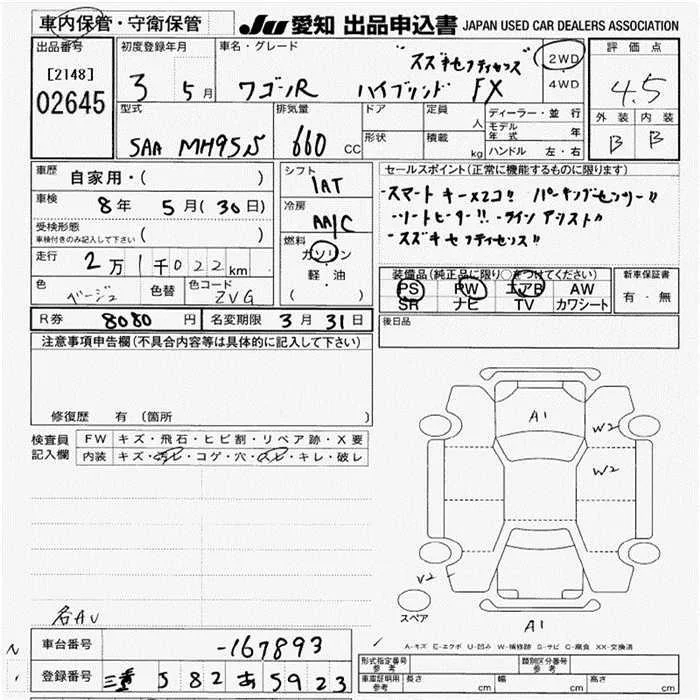 車内保管・守衛保管
JU 愛知 出品申込書 JAPAN USED CAR DEALERS ASSOCIATION
出品番号
[2148]
02645
初度登録年月
3 5月
車名・グレード
"スズキセフティセンス"
ワゴンR ハイブリッド FX
2WD
4WD
評価点
4.5
外装 内装
B B
型式
5AA MH95S
排気量
660 CC
ドア
形状
定員 人
積載 kg
ディーラー・並行
モデル年式 年
ハンドル 左・右
車歴
自家用・( )
車検
8年 5月(30日)
受検形態
車検付きのみ記入して下さい
( )
走行
2万1千022km
色
ベージュ
色替
色コード
ZVG
シフト
IAT
冷房
AA/C
燃料
ガソリン
軽・油
( )
セールスポイント(正常に機能するものに限ります)
・スマートキーx2コ!! パーキングセンサー!!
・シートヒーター!!・ラインアシスト!!
・スズキセフティセンス!!
装備品(純正品に限り○をつけてください)
PS PW エアB AW
SR ナビ TV カワシート
新車保証書
有・無
R券 8080円 名変期限 3月31日
後日品
注意事項申告欄(不具合内容等は具体的に記入して下さい)
修復歴 有(箇所 )
検査員
記入欄
FW キズ・飛石・ヒビ割・リペア跡・X要
内装 キズ・汚レ・コゲ・穴・スレ・キレ・破レ
A1
W2
W2
V2
スペア
A1
名AU
A-キズ E-エクボ U-凹み W-補修跡 S-サビ C-腐食 XX-交換済
車台番号
-167893
登録番号 三重 582あ5923
型式指定番号
参考
類別区分番号
参考
車庫証明用
参考
長さ cm 幅 cm 高さ cm